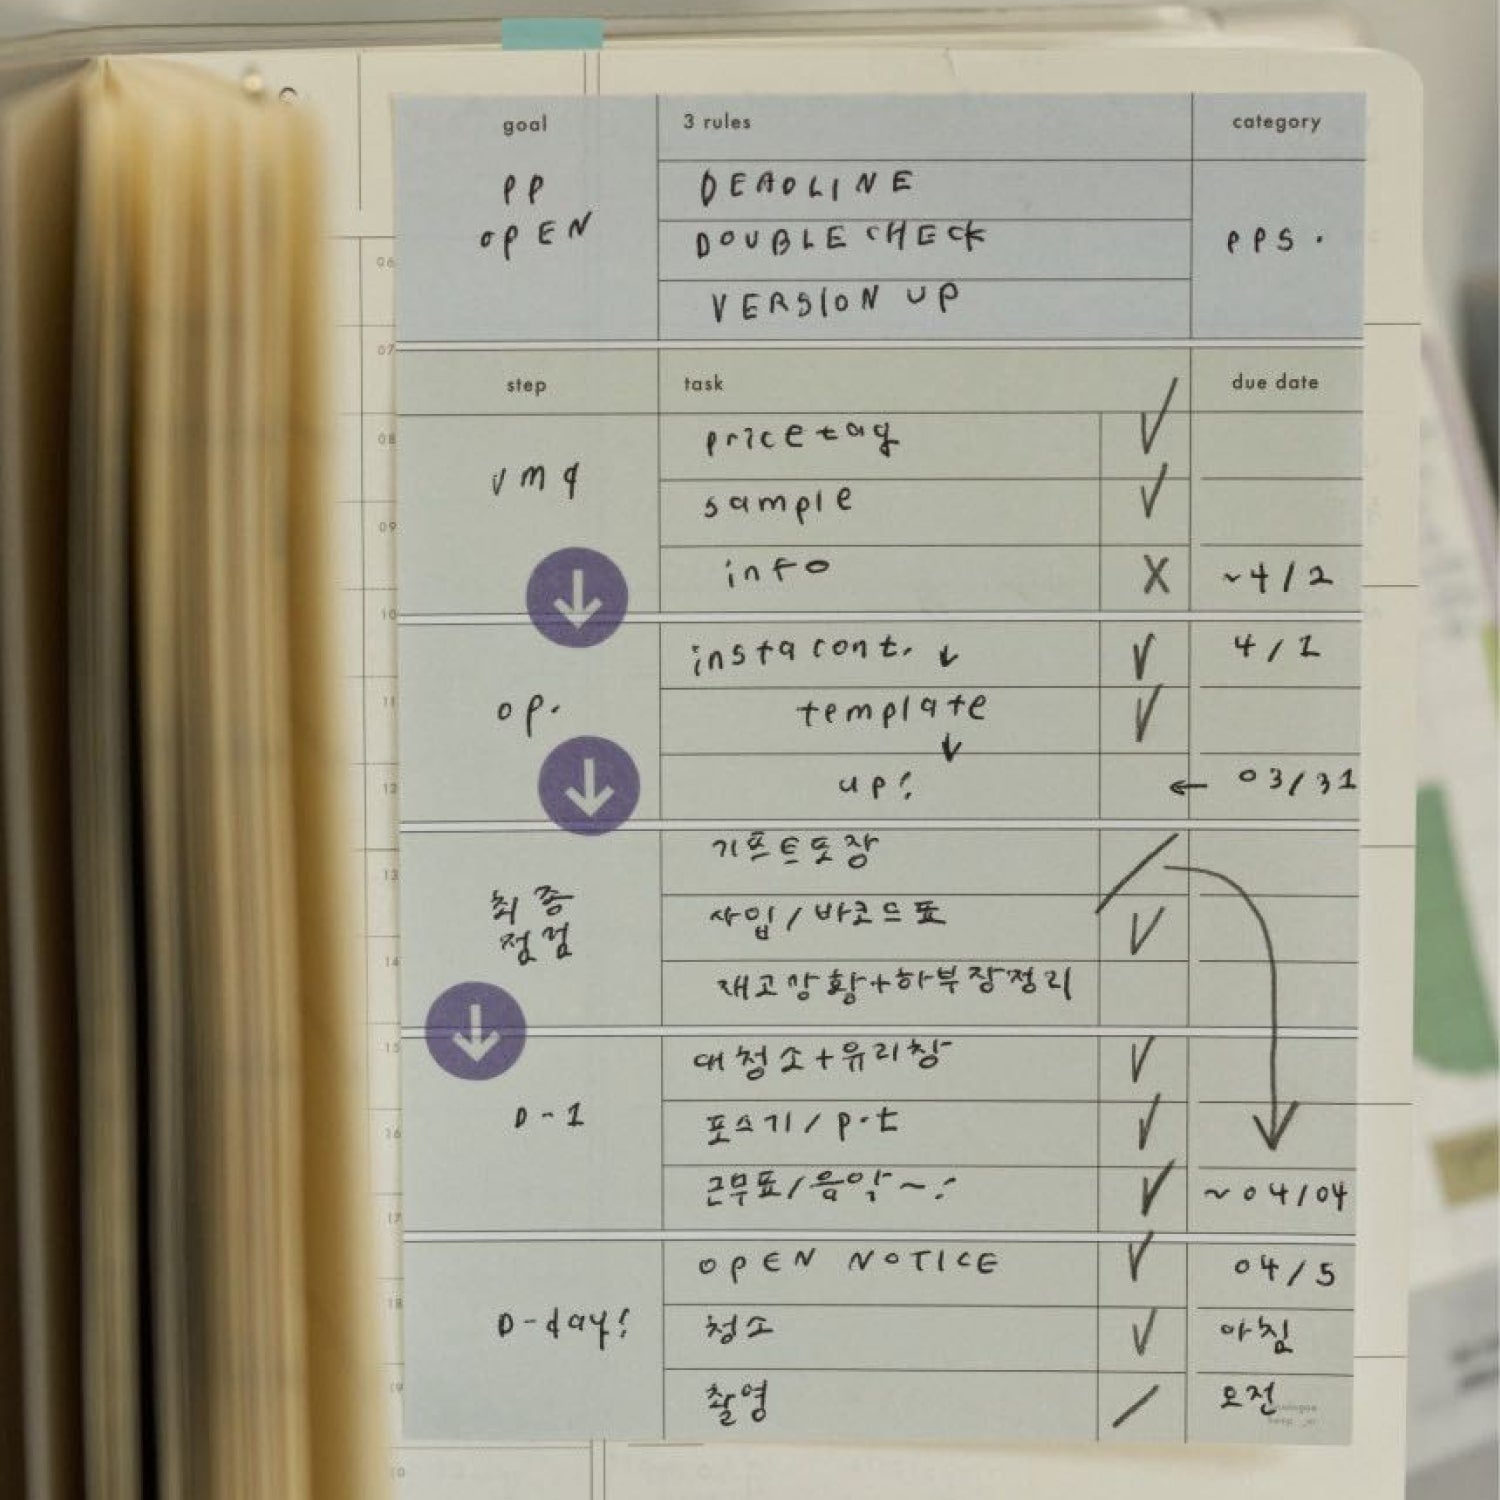 goal
3 rules
category
PP
OPEN
DEADLINE
DOUBLE CHECK
VERSION UP
PPS.
step
task
due date
pricetag
sample
info
~4/2
insta cont.
4/1
op.
template
up!
03/31
최종
점검
기프트포장
사입/바코드표
재고상황+하부장정리
D-1
대청소+유리창
포스기/p.t
근무표/음악~
~04/04
D-day!
OPEN NOTICE
04/5
청소
아침
촬영
오전
06
07
08
09
10
11
12
13
14
15
16
17
18
19